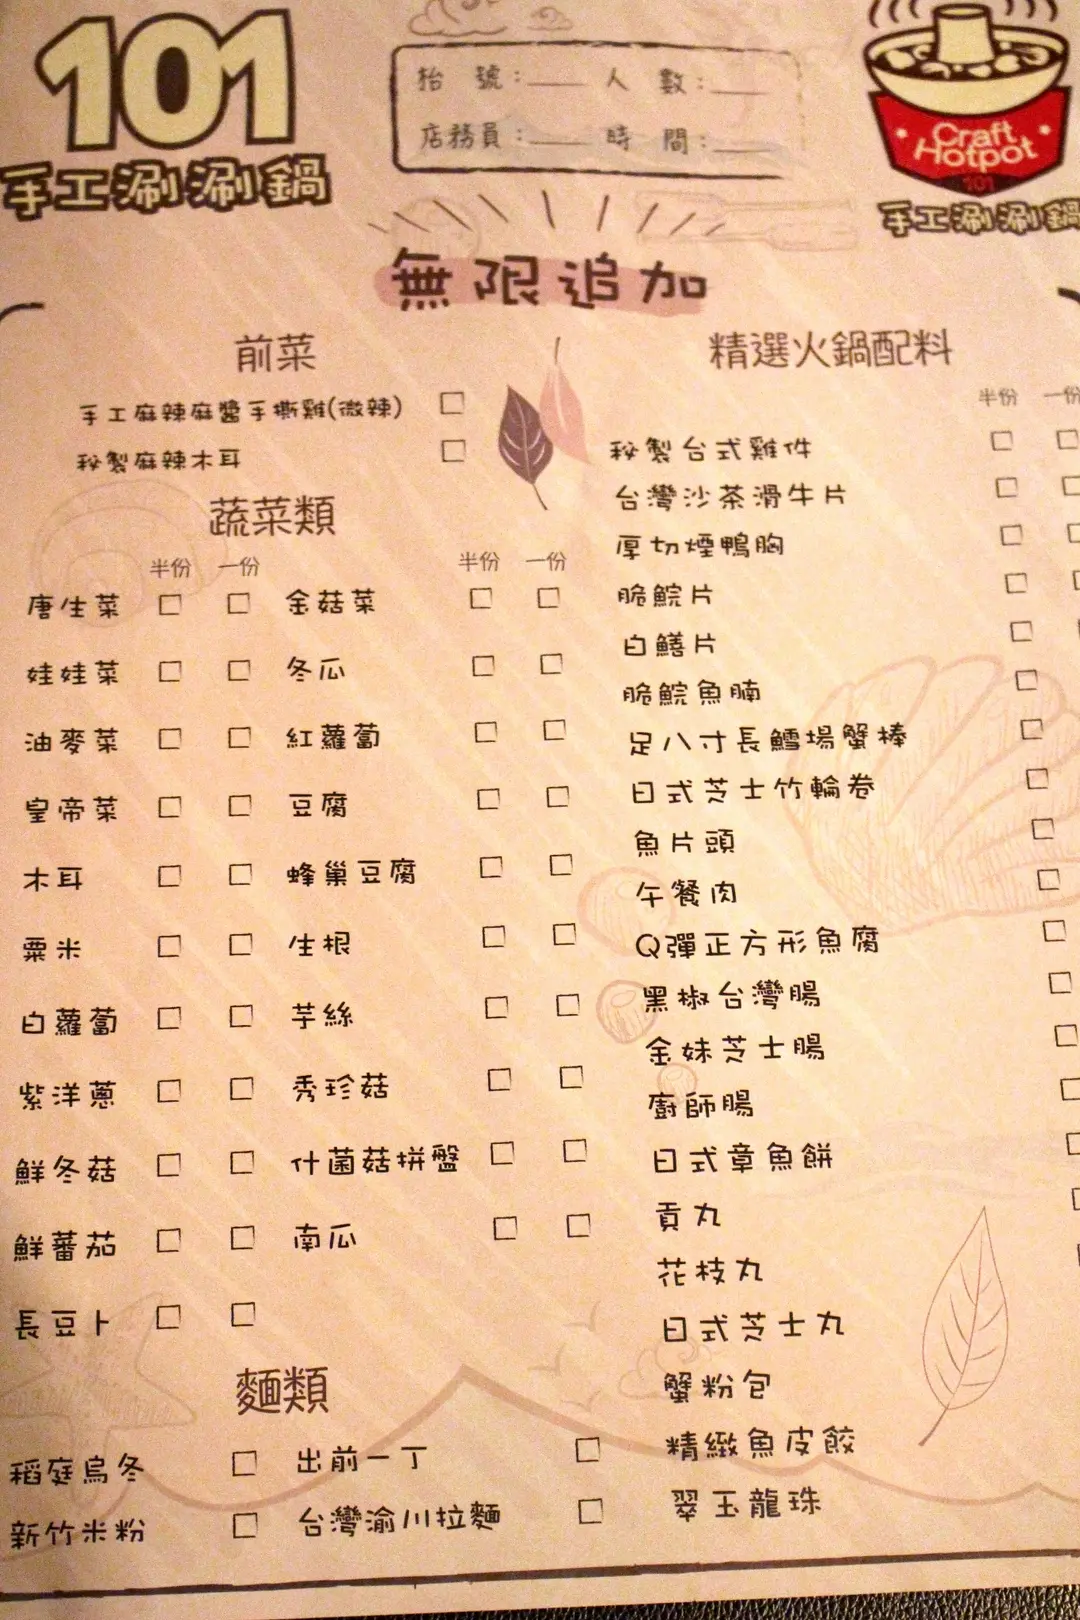 101
手工涮涮鍋
枱 號：____ 人 數：____
店務員：____ 時 間：____
Craft
Hotpot
101
手工涮涮鍋
無限追加
前菜
手工麻辣麻醬手撕雞(微辣)
秘製麻辣木耳
蔬菜類
半份 一份 半份 一份
唐生菜 金菇菜
娃娃菜 冬瓜
油麥菜 紅蘿蔔
皇帝菜 豆腐
木耳 蜂巢豆腐
粟米 生根
白蘿蔔 芋絲
紫洋蔥 秀珍菇
鮮冬菇 什菌菇拼盤
鮮蕃茄 南瓜
長豆卜
麵類
稻庭烏冬 出前一丁
新竹米粉 台灣渝川拉麵
精選火鍋配料
半份 一份
秘製台式雞件
台灣沙茶滑牛片
厚切煙鴨胸
脆鯇片
白鱔片
脆鯇魚腩
足八寸長鱈場蟹棒
日式芝士竹輪卷
魚片頭
午餐肉
Q彈正方形魚腐
黑椒台灣腸
金妹芝士腸
廚師腸
日式章魚餅
貢丸
花枝丸
日式芝士丸
蟹粉包
精緻魚皮餃
翠玉龍珠